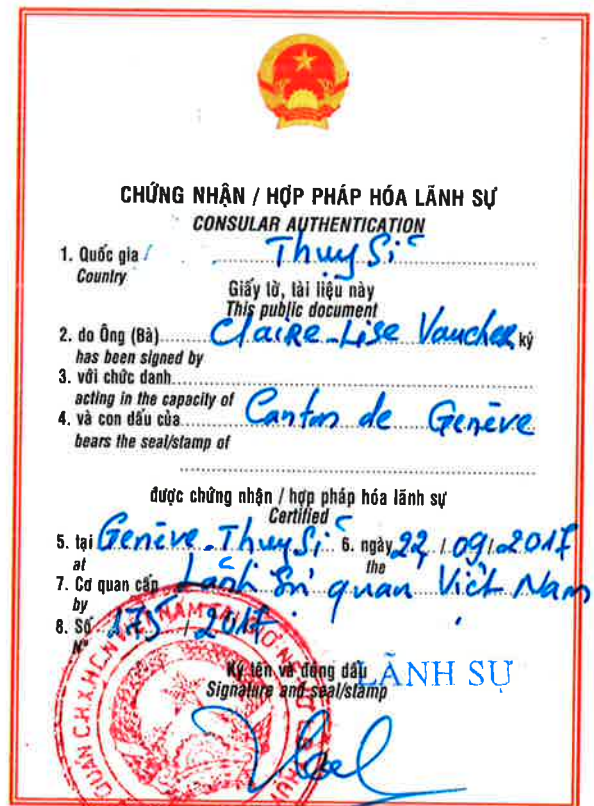 CHỨNG NHẬN / HỢP PHÁP HÓA LÃNH SỰ
CONSULAR AUTHENTICATION
1. Quốc gia Thụy Sĩ
Country
Giấy tờ, tài liệu này
This public document
2. do Ông (Bà) Claire-Lise Vaucher ký
has been signed by
3. với chức danh
acting in the capacity of
4. và con dấu của Canton de Genève
bears the seal/stamp of
được chứng nhận / hợp pháp hóa lãnh sự
Certified
5. tại Genève Thụy Sĩ 6. ngày 22 / 09 / 2017
at the
7. Cơ quan cấp Lãnh sự quan Việt Nam
by
8. Số 175 / 2017
N°
Ký tên và đóng dấu LÃNH SỰ
Signature and seal/stamp
QUÁN C.H.X.H.C.N